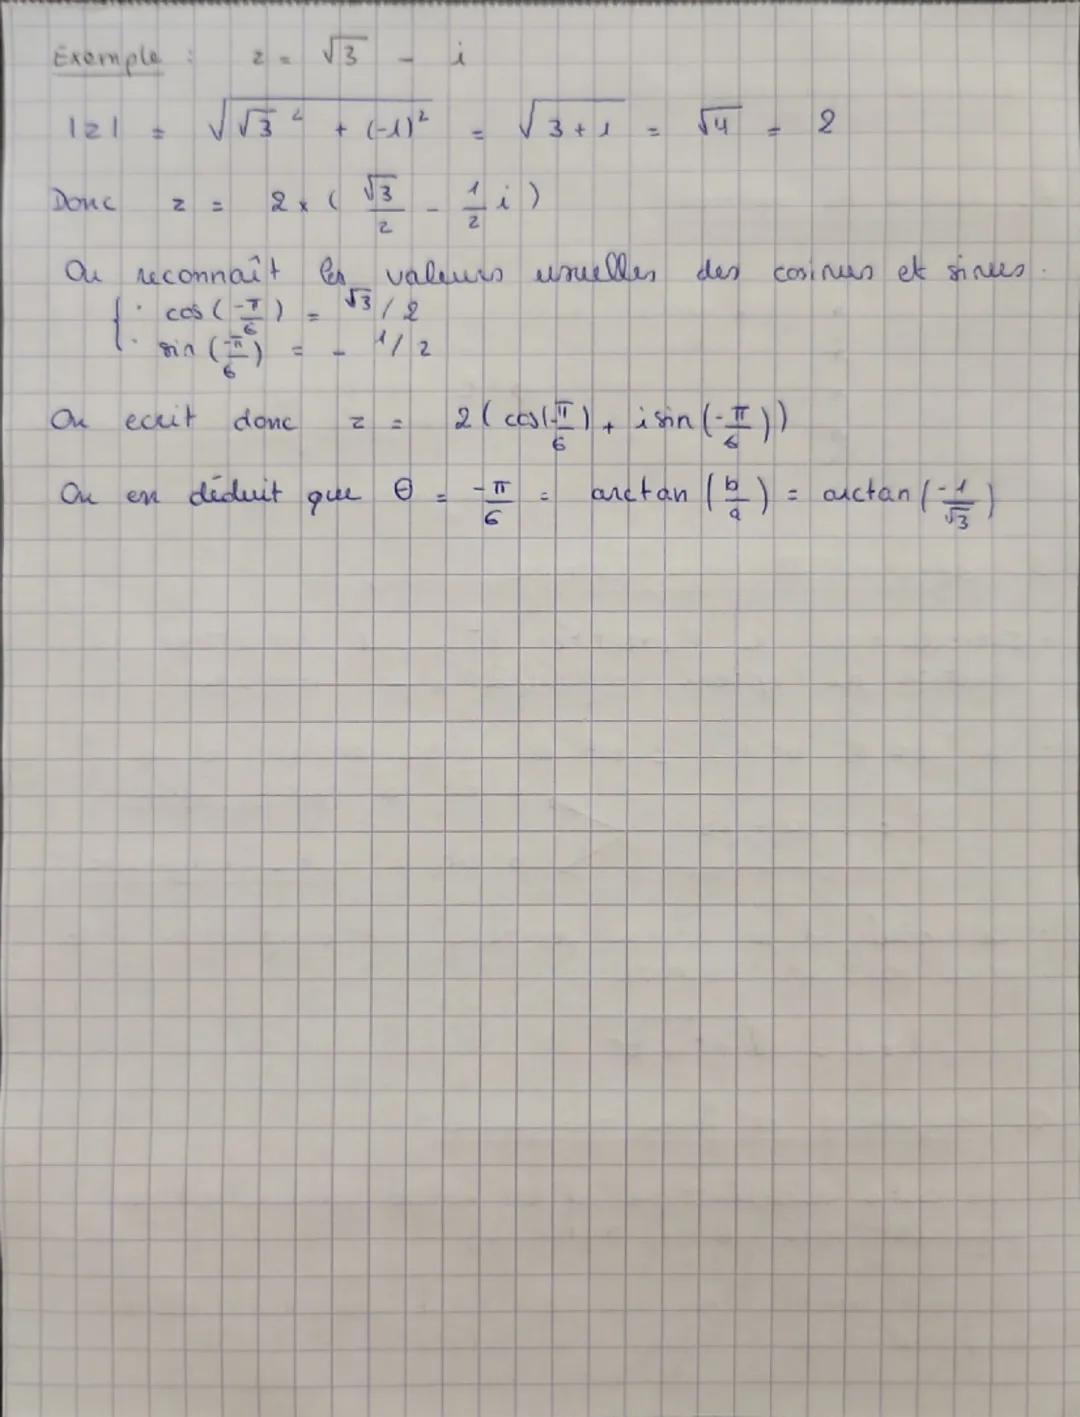 Exemple : z = √3 - i
|z| = √(√3² + (-1)²) = √(3+1) = √4 = 2
Donc z = 2 × ( √3/2 - 1/2 i )
On reconnaît les valeurs usuelles des cosinus et sinus.
{ · cos(-π/6) = √3/2
· sin(-π/6) = - 1/2
On ecrit donc z = 2( cos(-π/6) + i sin(-π/6))
On en déduit que θ = -π/6 = arctan(b/a) = arctan(-1/√3)